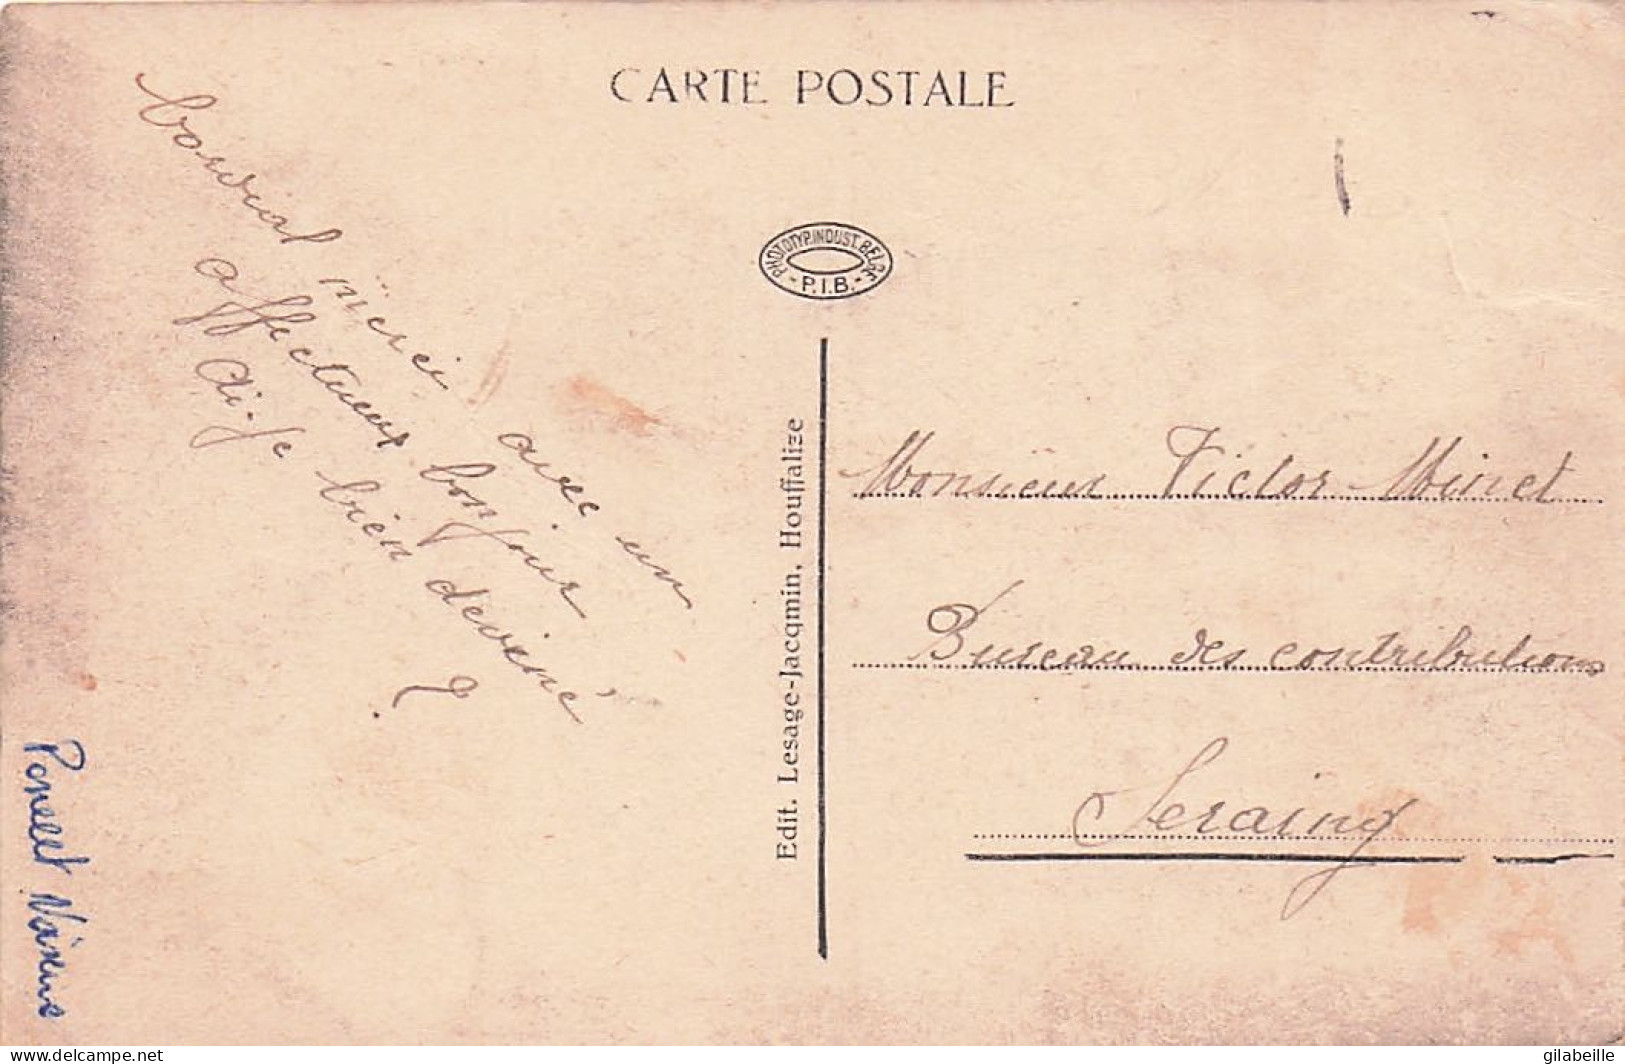 CARTE POSTALE
PHOTOTYP. INDUST. BELGE
- P.I.B. -
Cordial merci avec un
affectueux bonjour
Ai-je bien deviné
?
Edit. Lesage-Jacqmin, Houffalize
Monsieur Victor Minet
Bureau des contributions
Seraing
www.delcampe.net
gilabeille